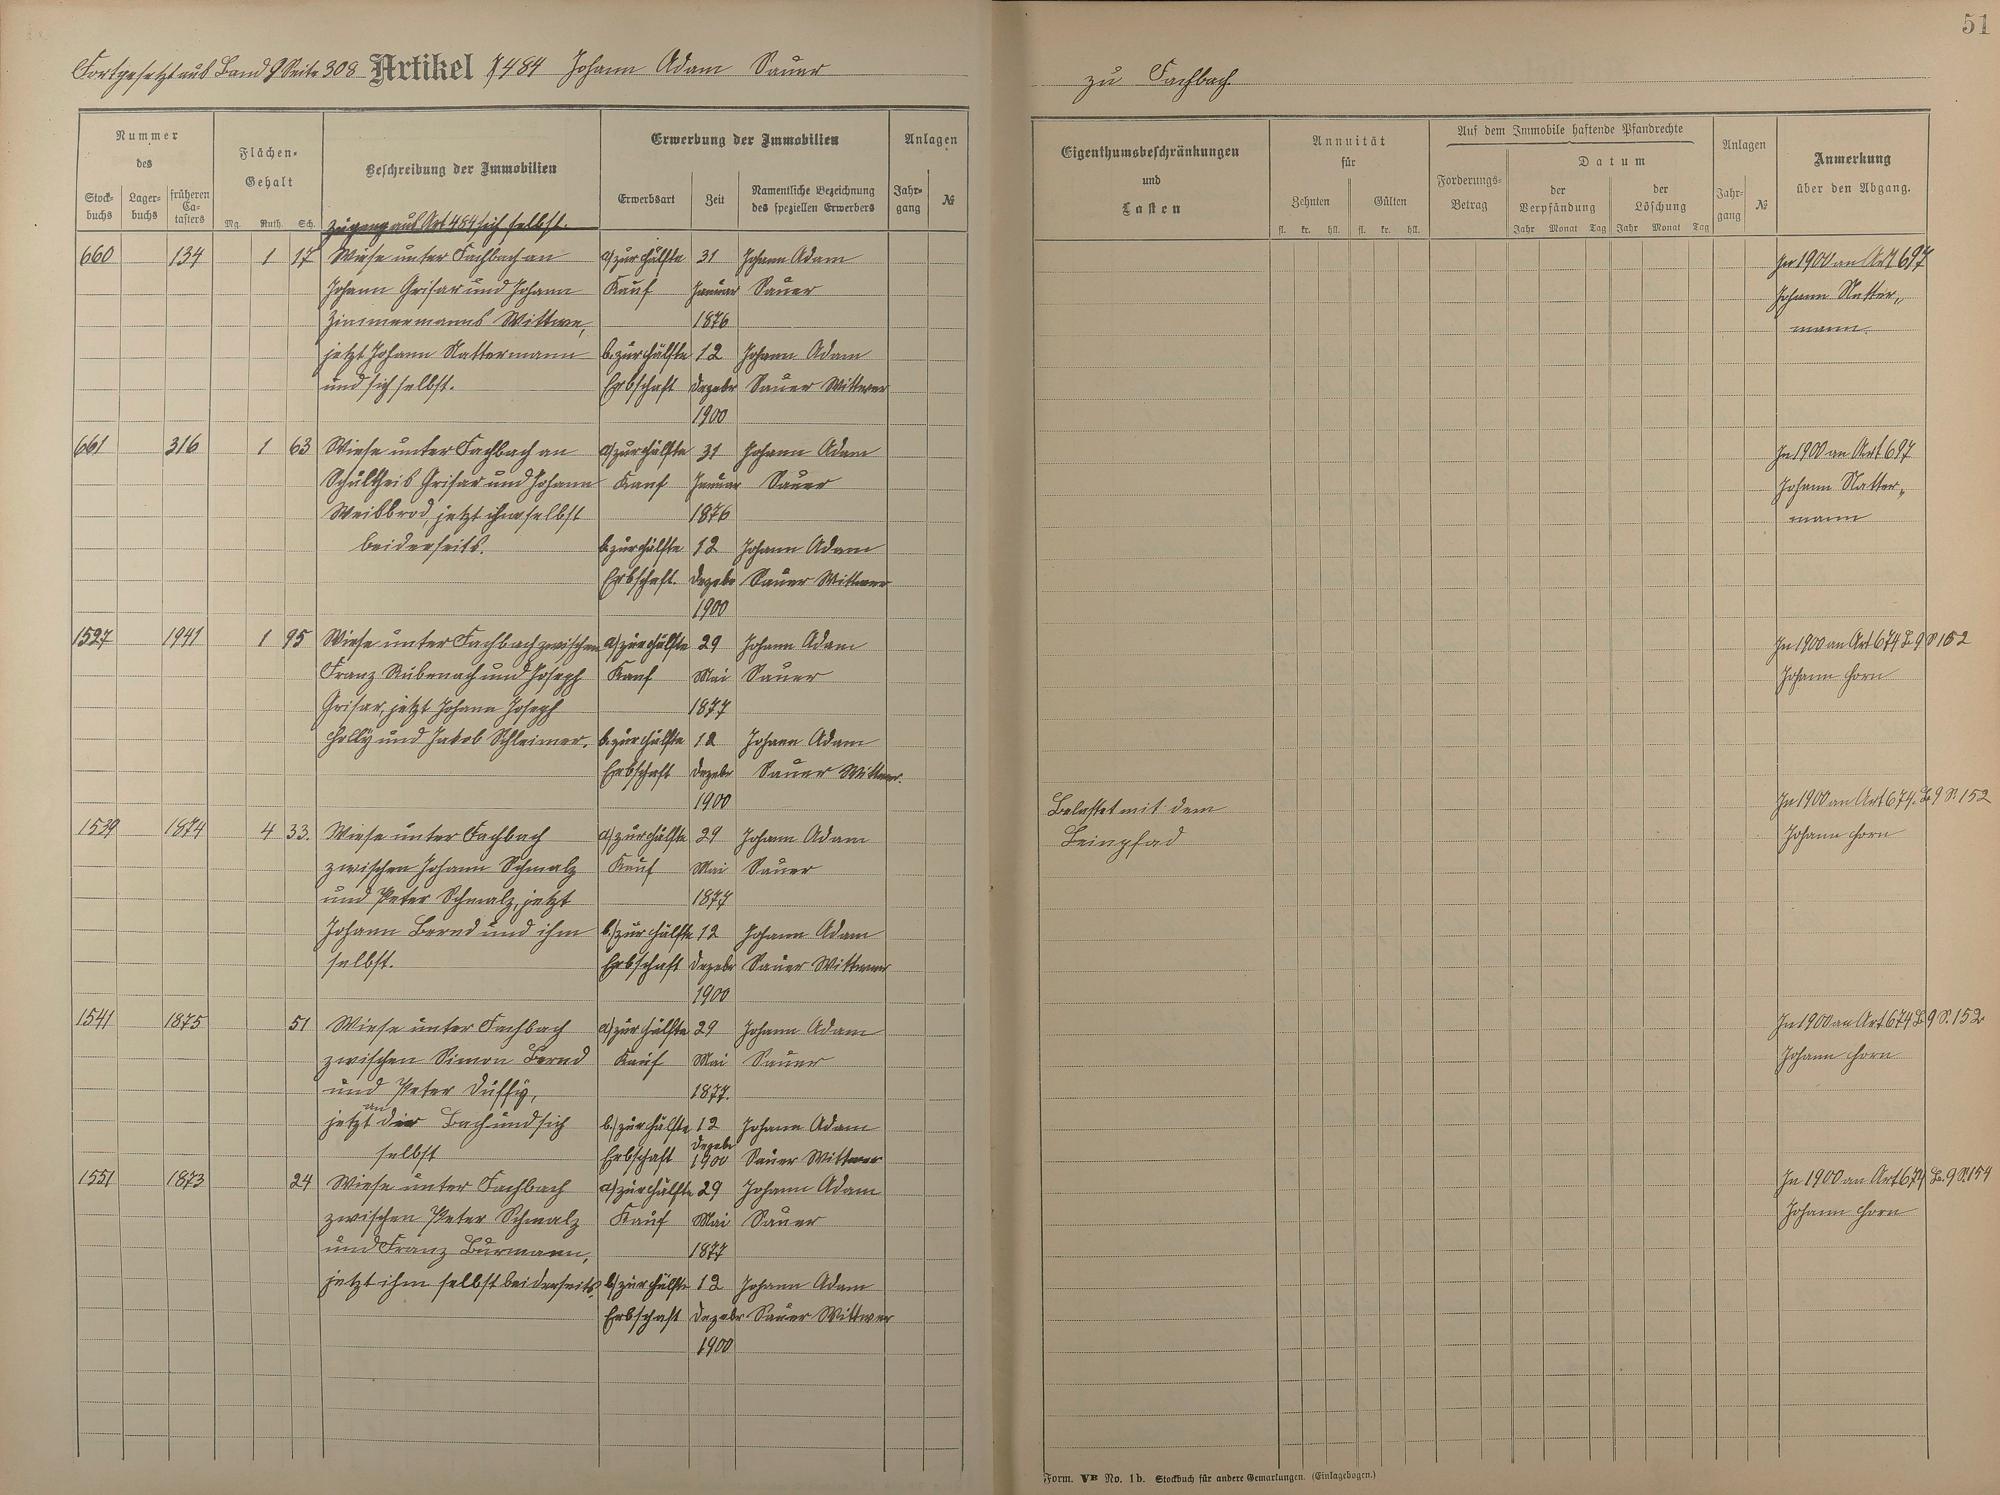 51
Fortgesetzt aus Band 9 Seite 308 Artikel 484 Johann Adam Sauer
zu Fachbach.
Nummer
des
Stock-
buchs
Lager-
buchs
früheren
Ca-
tasters
Flächen-
Gehalt
Mg. Ruth. Sch.
Beschreibung der Immobilien
Erwerbung der Immobilien
Erwerbsart
Zeit
Namentliche Bezeichnung
des speziellen Erwerbers
Anlagen
Jahr-
gang
№
Zugang aus Art 484 sich selbst.
660 134 1 17 Wiese unter Fachbach an a) zur Hälfte 31 Johann Adam
Johann Grisar und Johann Kauf Januar Sauer
Zimmermanns Wittwe, 1876
jetzt Johann Nattermann b. zur Hälfte 12 Johann Adam
und sich selbst. Erbschaft Dezebr Sauer Wittwer
1900
661 316 1 63 Wiese unter Fachbach an a) zur Hälfte 31 Johann Adam
Schultheis Grisar und Johann Kauf Januar Sauer
Weisbrod, jetzt ihm selbst 1876
beiderseits. b. zur Hälfte 12 Johann Adam
Erbschaft. Dezebr Sauer Wittwer
1900
1527 1941 1 95 Wiese unter Fachbach zwischen a) zur Hälfte 29 Johann Adam
Franz Rübenach und Joseph Kauf Mai Sauer
Grisar, jetzt Johann Joseph 1877
Holly und Jakob Schleimer. b. zur Hälfte 12 Johann Adam
Erbschaft Dezebr Sauer Wittwer.
1900
1539 1874 4 33. Wiese unter Fachbach a) zur Hälfte 29 Johann Adam
zwischen Johann Schmalz Kauf Mai Sauer
und Peter Schmalz, jetzt 1877
Johann Bernd und ihm b.) zur Hälfte 12 Johann Adam
selbst. Erbschaft Dezebr Sauer Wittwer
1900
1541 1875 51 Wiese unter Fachbach a) zur Hälfte 29 Johann Adam
zwischen Simon Bernd Kauf Mai Sauer
und Peter Düffy, 1877.
jetzt an der Bach und sich b.) zur Hälfte 12 Johann Adam
selbst Erbschaft Dezebr 1900 Sauer Wittwer
1551 1873 24 Wiese unter Fachbach a) zur Hälfte 29 Johann Adam
zwischen Peter Schmalz Kauf Mai Sauer
und Franz Burmann, 1877
jetzt ihm selbst beiderseits. b) zur Hälfte 12 Johann Adam
Erbschaft Dezebr Sauer Wittwer
1900
Eigenthumsbeschränkungen
und
Lasten
Annuität
für
Zehnten
Gülten
fl. kr. hll. fl. kr. hll.
Auf dem Immobile haftende Pfandrechte
Forderungs-
Betrag
Datum
der
Verpfändung
der
Löschung
Jahr Monat Tag Jahr Monat Tag
Anlagen
Jahr-
gang
№
Anmerkung
über den Abgang.
In 1900 an Art 697
Johann Natter-
mann.
In 1900 an Art 697
Johann Natter-
mann
In 1900 an Art 674 B 9 S 152
Johann Horn
Belastet mit dem
Leinpfad
In 1900 an Art 674. B. 9 S. 152
Johann Horn
In 1900 an Art 674 B 9 S. 152
Johann Horn
In 1900 an Art 674 B. 9 S. 154
Johann Horn
Form. VB No. 1b. Stockbuch für andere Gemarkungen. (Einlagebogen.)